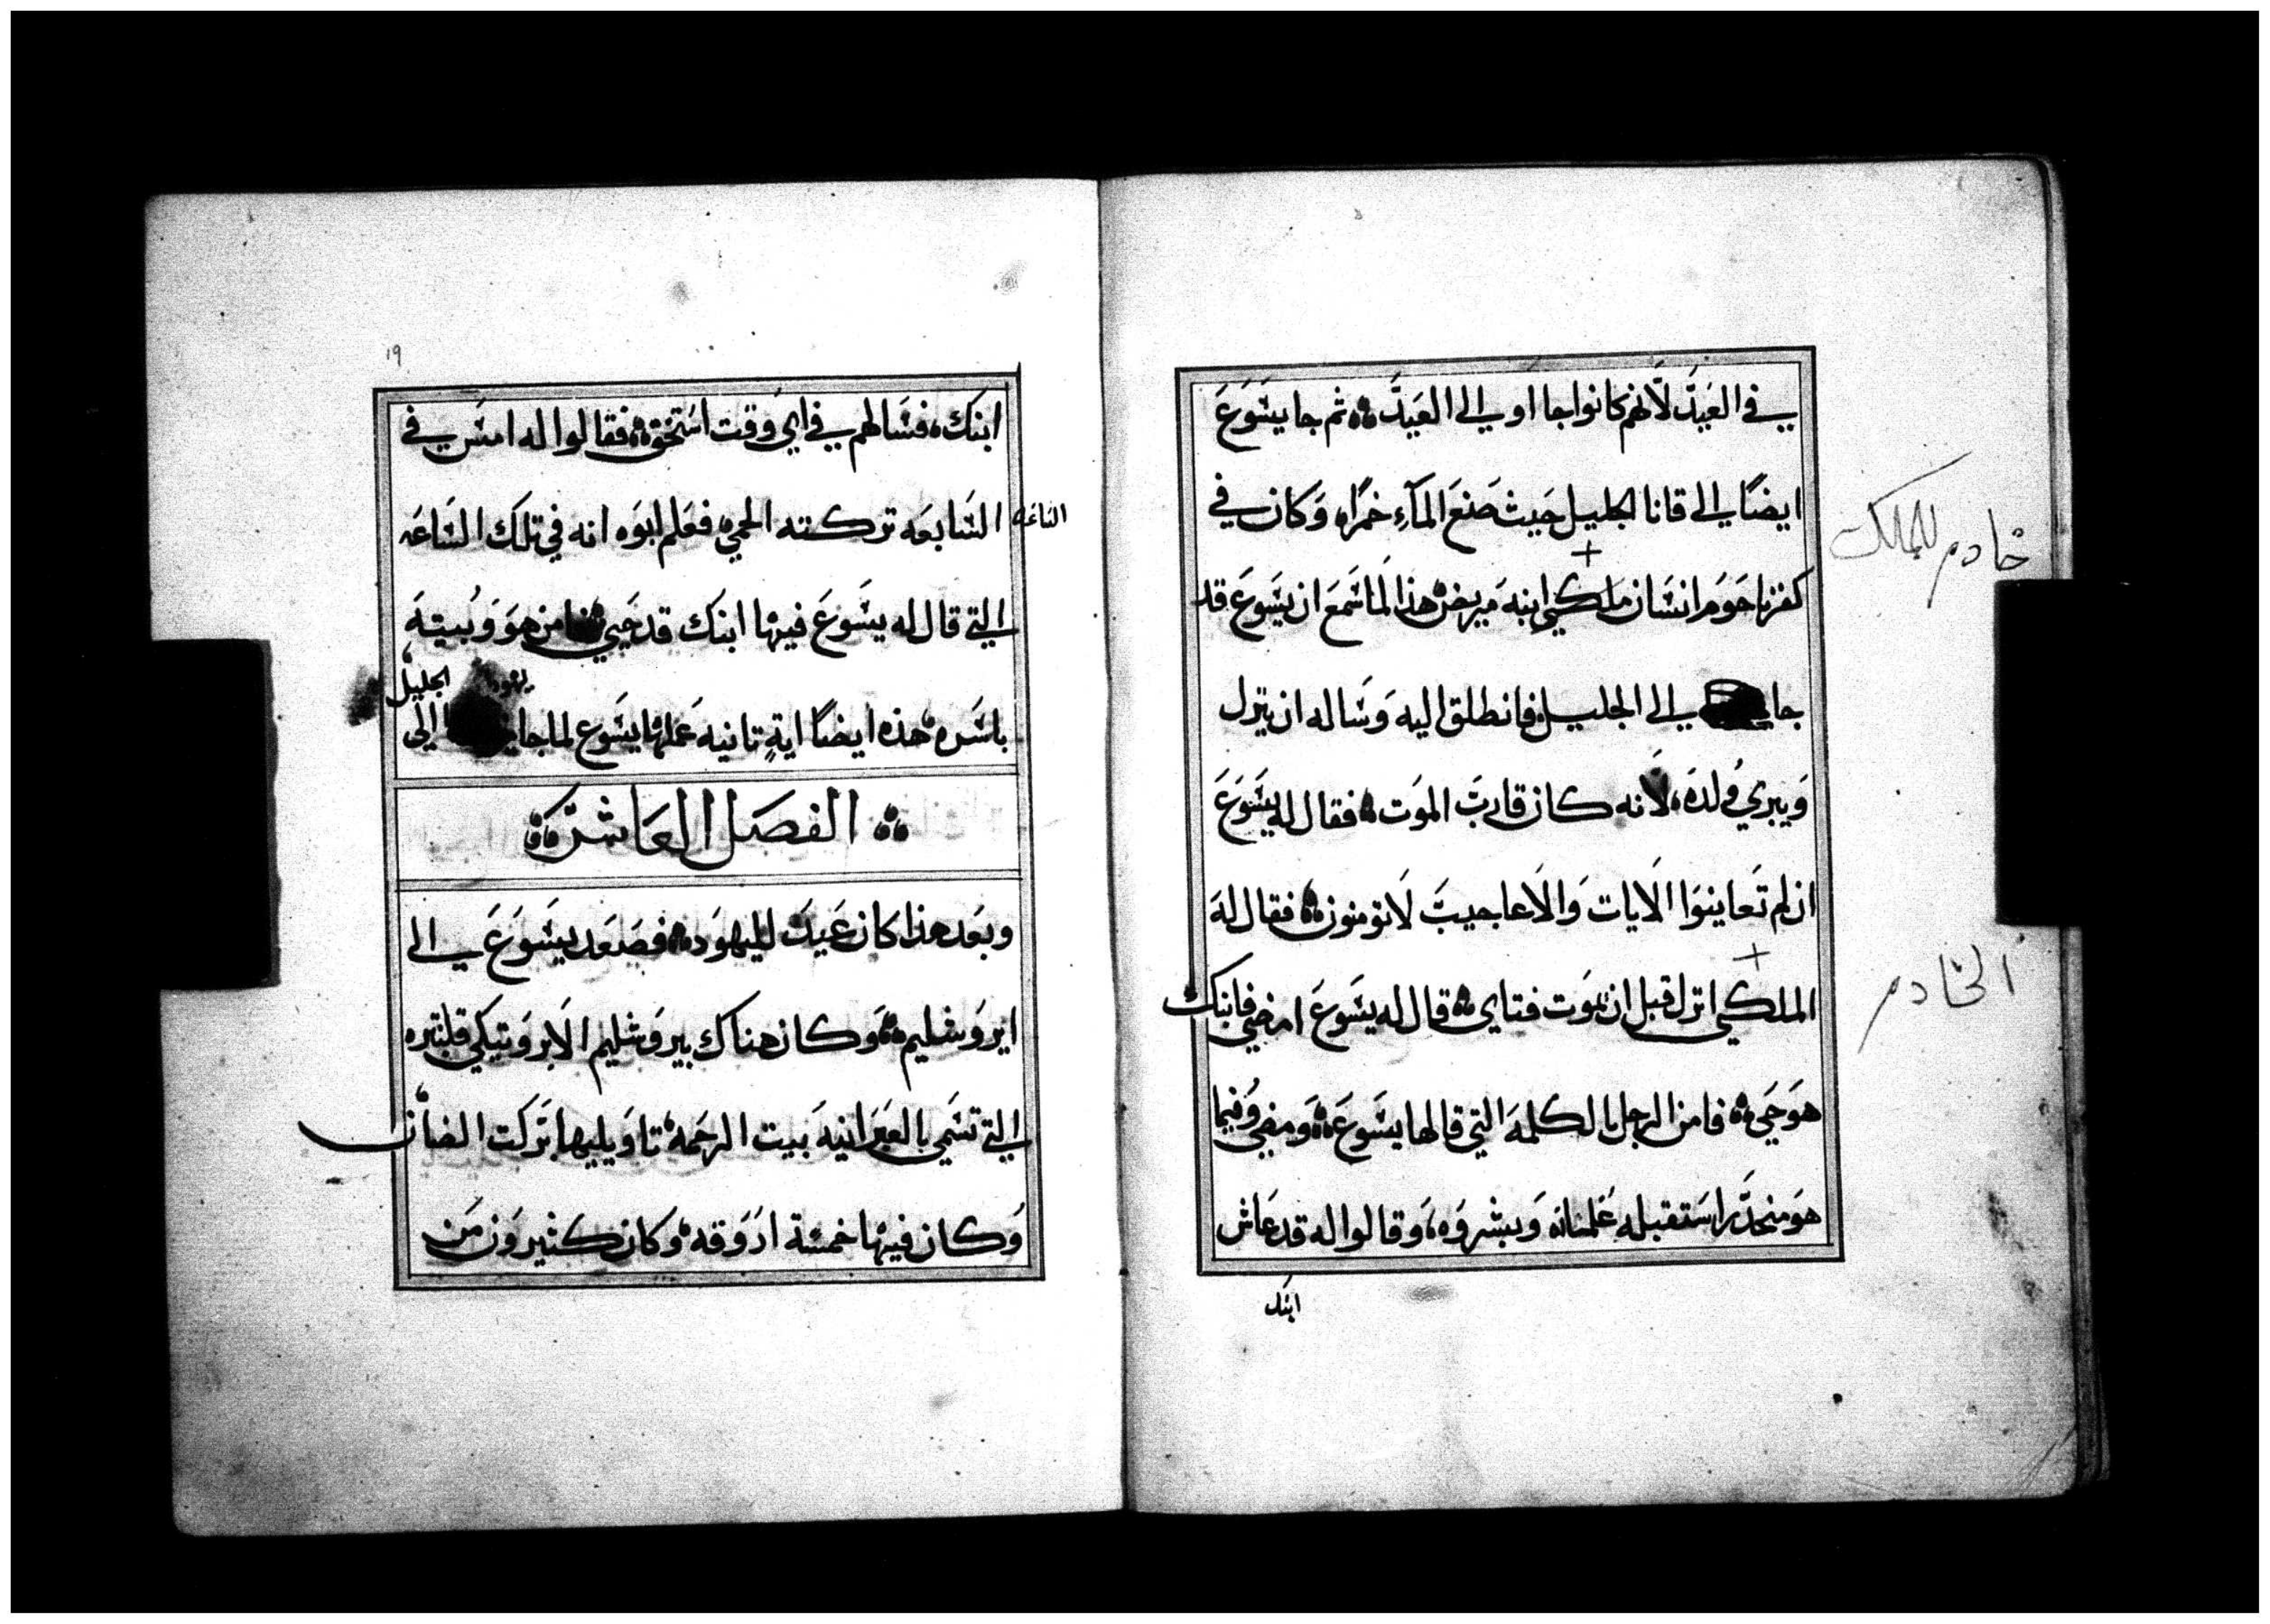 في العَيدَّ لَانهم كانوا جااو الى العَيدَّ ثم جا يسَوَعَ
ايضًا الى قانا الجليل حَيث صَنعَ المَآءِ خمرًا وَكان في
خادم للمالك
كفرناحَومَ انسَان ملكي ابنهَ مَريض هذا لمَا سَمعَ ان يسَوعَ قد
جا الى الجليل فانطلق اليه وَسَاله ان ينزل
وَيبري وَلدَه لَانه كان قاربَ الموَت فقال له يسَوَعَ
ان لم تعَاينوَا الَايات وَالَاعاجيبَ لَاتومنون فقال لهَ
الملكي انزل قبل ان يموَت فتاي قال له يسَوعَ امضي فابنك
الخادم
هوَ حَي فامن الرجل بالكلمهَ التي قالها يسَوعَ وَمضي وَفيما
هوَ منحدَّر استَقبله غَلمانه وَبشروَه وَقالوا له قد عَاش
ابنك
١٩
ابنَك فسَالهم في اي وَقت استَخق فقالوا له امسَ في
الساعه
السَابعَه تركته الحمي فعَلم ابوَه انه في تلك السَاعَه
التي قال له يسَوعَ فيها ابنَك قد حَيي فامن هوَ وَبيتهَ
يهودا الجليل
باسَره هذه ايضًا ايةٍ تانيه عَملها يسَوع لما جا الى
الفصَل العَاشر
وبعَد هذا كان عَيدَ لليهوَد فصَعَد يسَوَعَ الى
ايروَشليم وَكان هناك بيروَشليم الَابروَبتيكي قلنبتره
التي تسَمي بالعبَرانيهَ بَيت الرحَمه تاوَيليها بَركت الضان
وَكان فيها خمسَة اروَقه وَكان كثيروَن مَن